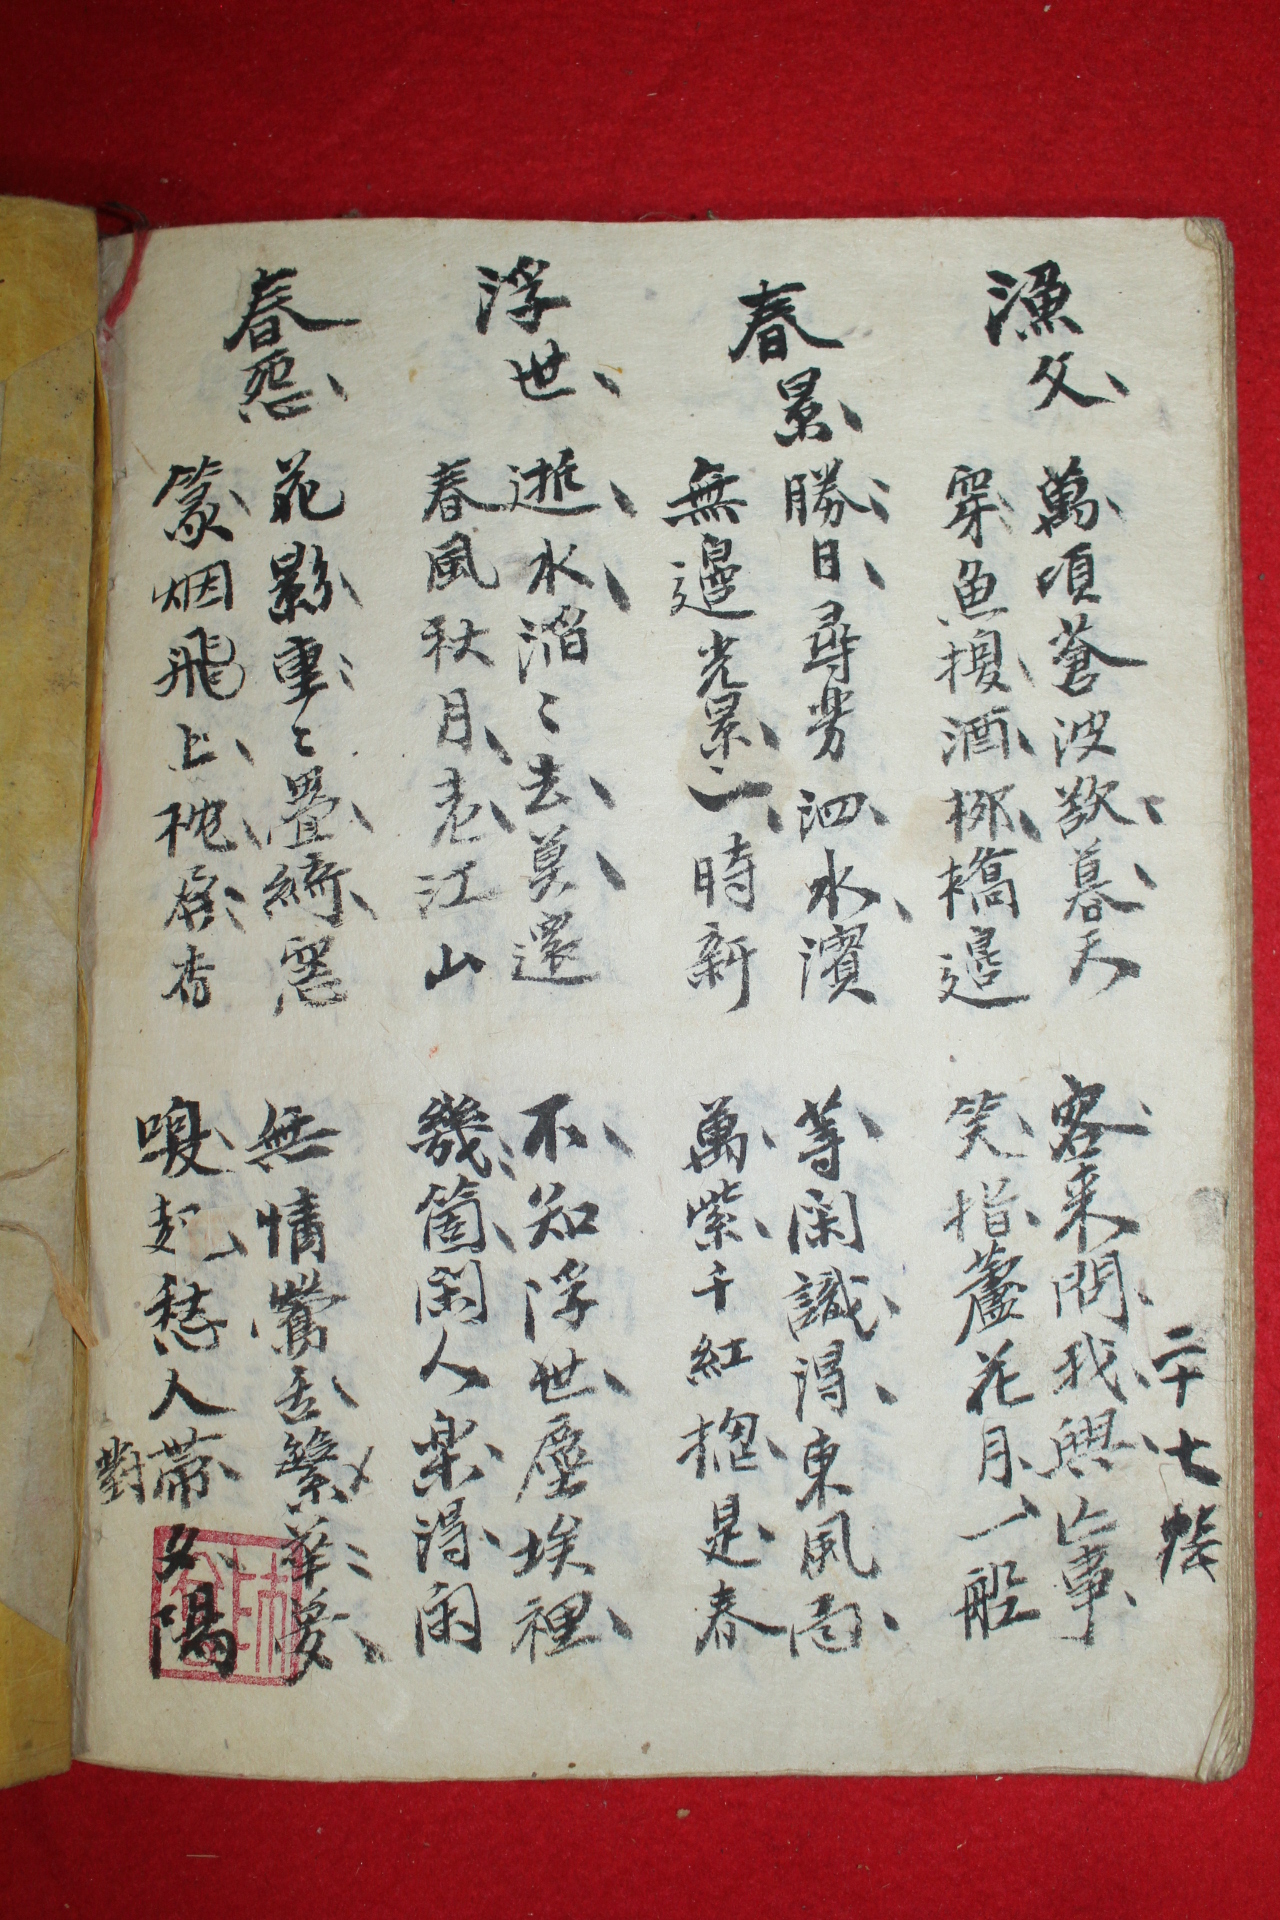 漁父
萬頃蒼波欲暮天
穿魚換酒柳橋邊
客来問我興亡事
笑指蘆花月一船
二十七帳
春景
勝日尋芳泗水濱
無邊光景一時新
等閑識得東風面
萬紫千紅摠是春
浮世
逝水滔〻去莫還
春風秋月老江山
不知浮世塵埃裡
幾箇閑人楽得閑
春怨
花影重〻疊綺窓
篆烟飛上枕屏香
無情鶯舌繁華夢
喚起愁人帶夕陽
對